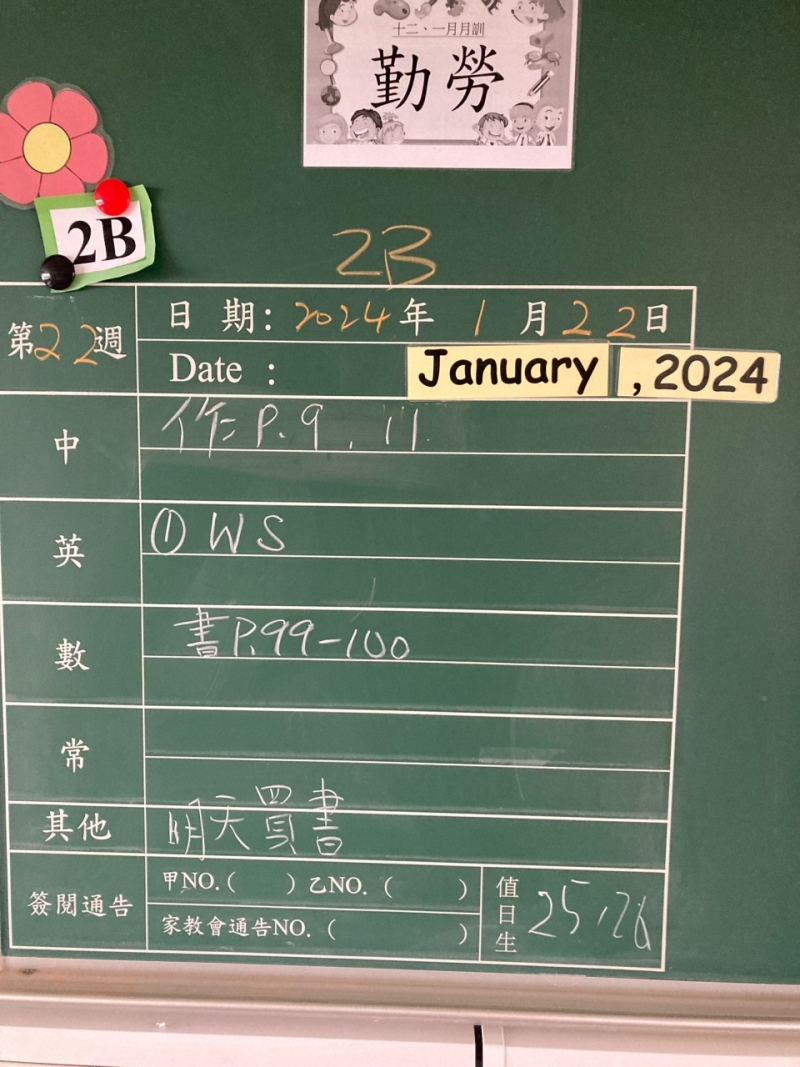 十二、一月月訓
勤勞
2B
2B
第22週
日期：2024年1月22日
Date： January , 2024
中 作 P.9 , 11.
英 ① WS
數 書P.99-100
常
其他 明天買書
簽閱通告 甲NO.( ) 乙NO.( )
家教會通告NO.( )
值日生 25,26